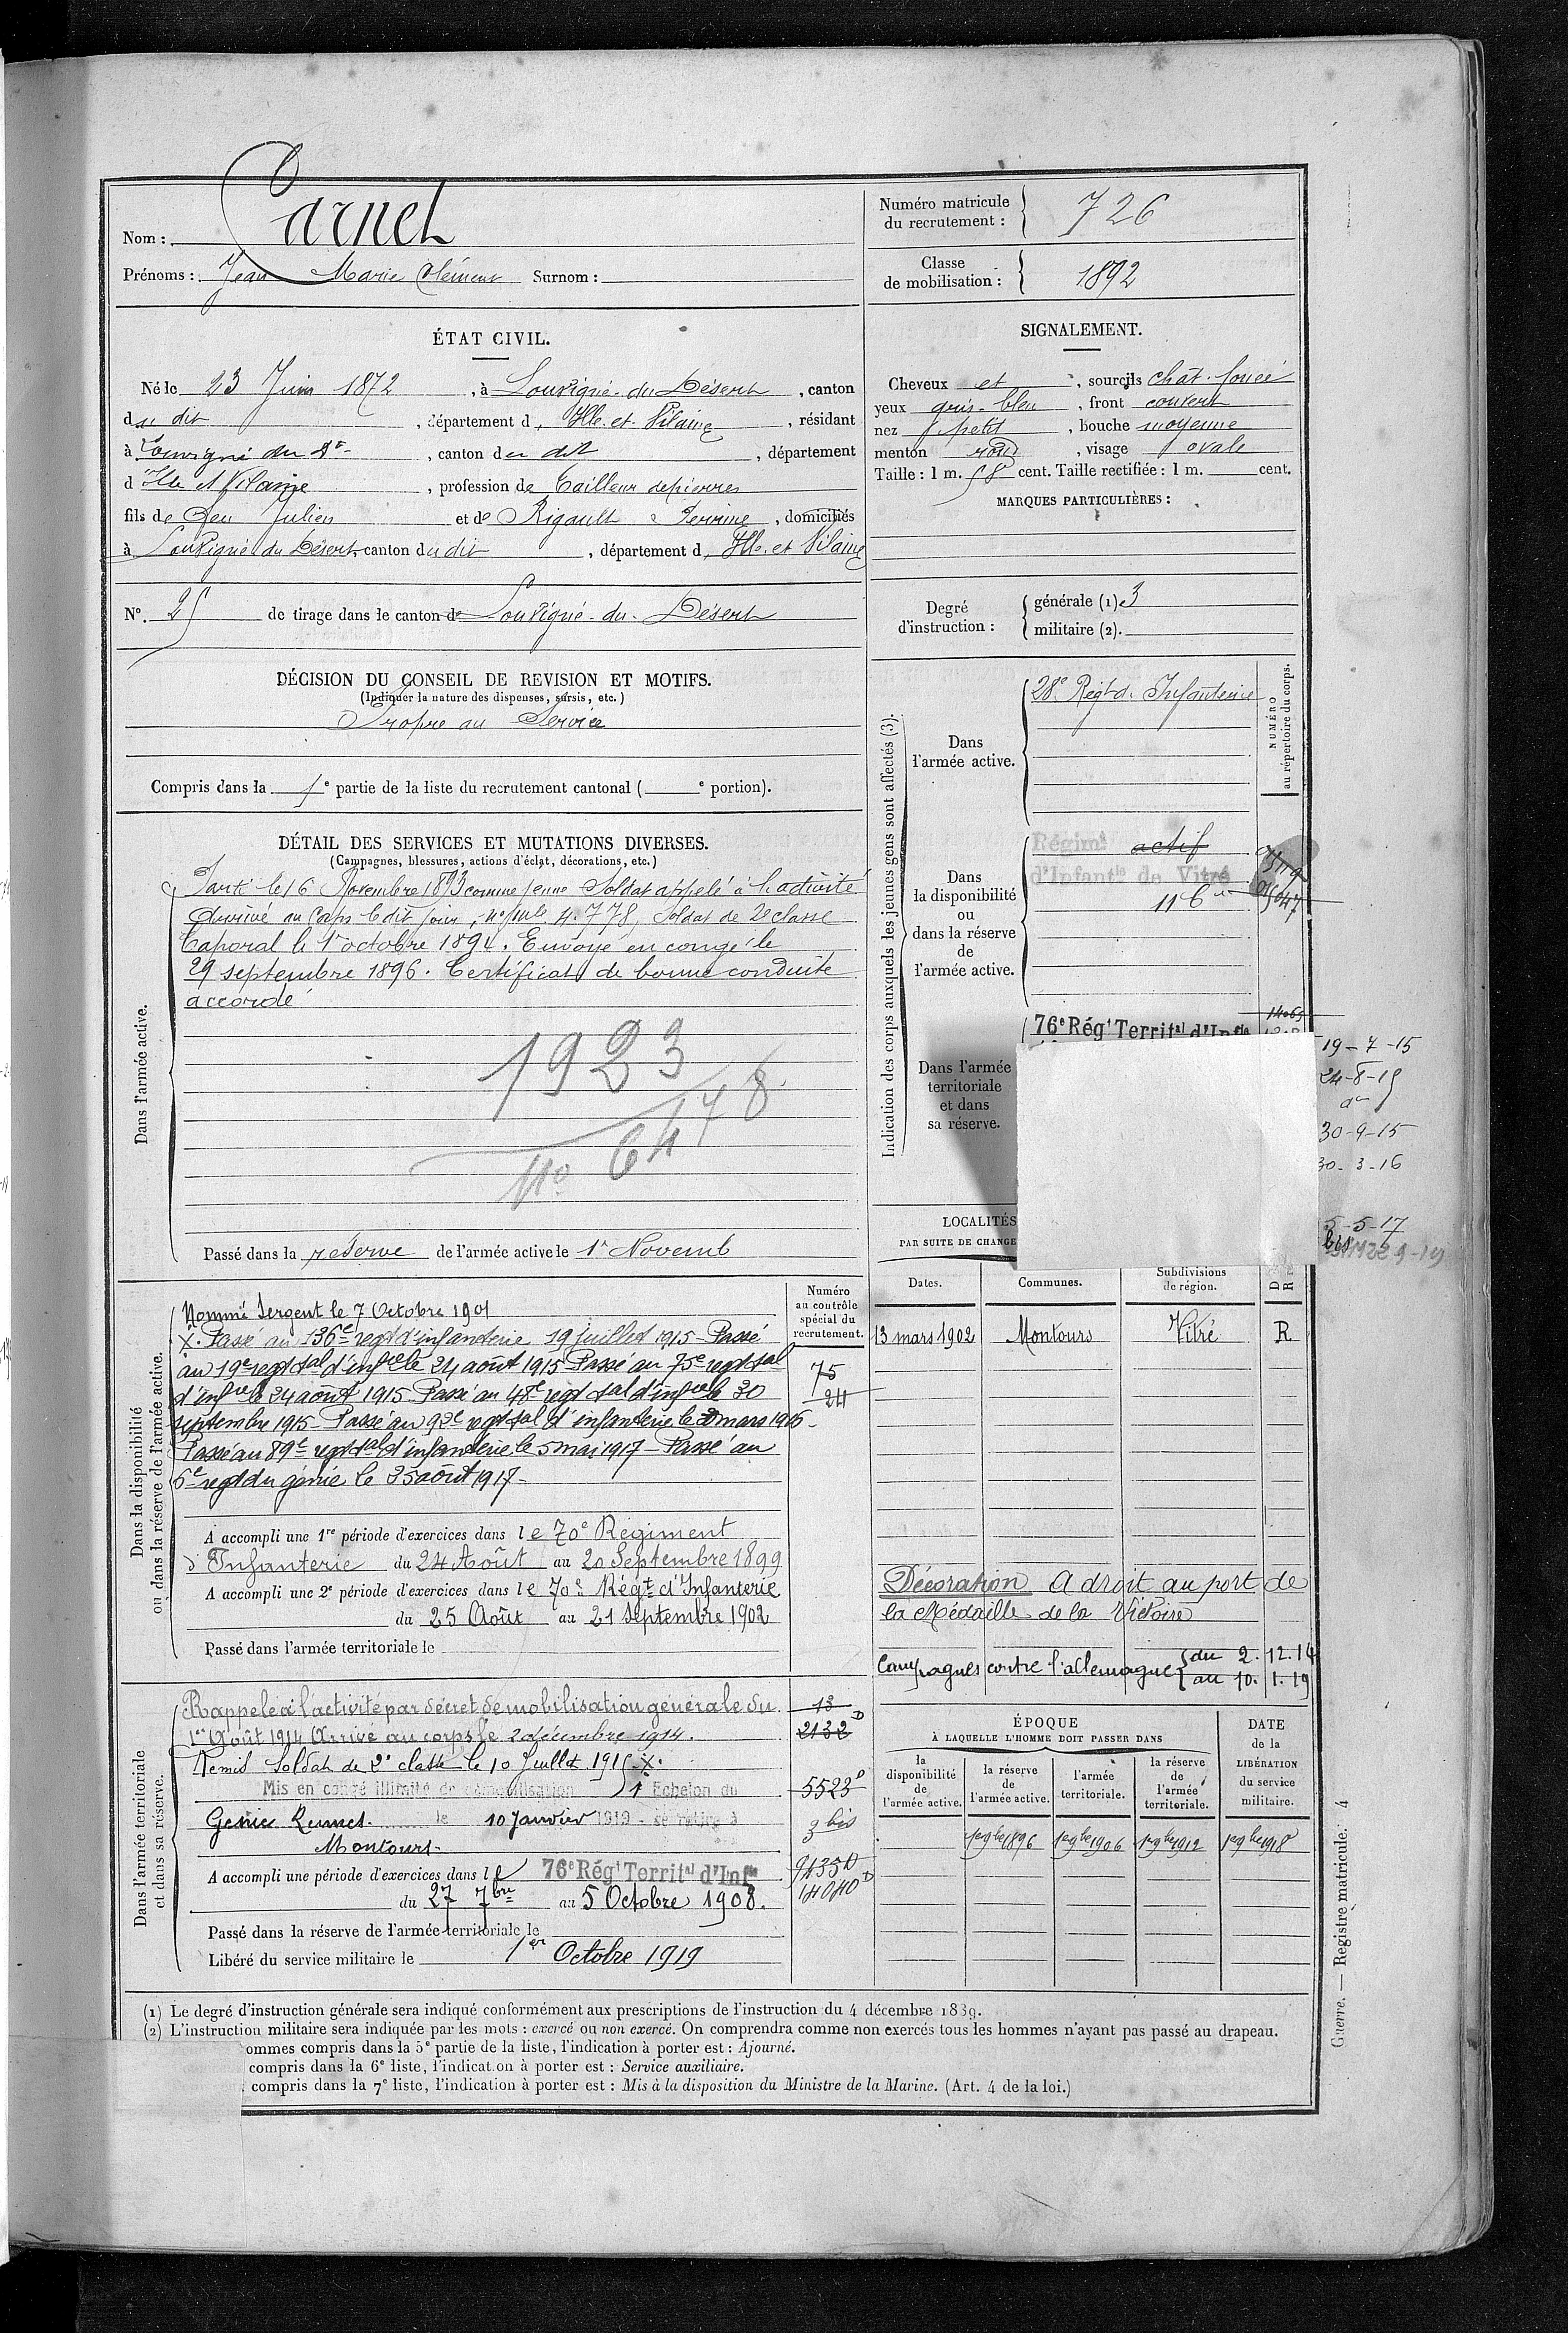 Nom : Carnet
Prénoms : Jean Marie Clément Surnom :
Numéro matricule du recrutement : 726
Classe de mobilisation : 1892
ÉTAT CIVIL.
Né le 23 Juin 1872, à Louvigné-du-Désert, canton
du dit, département d'Ille-et-Vilaine, résidant
à Louvigné du Dt, canton du dit, département
d'Ille et Vilaine, profession de tailleur de pierres
fils de feu Julien et de Rigault Perrine, domiciliés
à Louvigné du Désert, canton du dit, département d'Ille-et-Vilaine
N° 25 de tirage dans le canton de Louvigné-du-Désert
SIGNALEMENT.
Cheveux et, sourcils chat. foncé
yeux gris-bleu, front couvert
nez petit, bouche moyenne
menton rond, visage ovale
Taille : 1 m. 58 cent. Taille rectifiée : 1 m. cent.
MARQUES PARTICULIÈRES :
Degré d'instruction : générale (1) 3
militaire (2).
DÉCISION DU CONSEIL DE REVISION ET MOTIFS.
(Indiquer la nature des dispenses, sursis, etc.)
Propre au Service
Compris dans la 1e partie de la liste du recrutement cantonal ( e portion).
DÉTAIL DES SERVICES ET MUTATIONS DIVERSES.
(Campagnes, blessures, actions d'éclat, décorations, etc.)
Dans l'armée active.
Parti le 16 Novembre 1893 comme jeune Soldat appelé à l'activité
Arrivé au Corps le dit jour, no mle 4.778, Soldat de 2e classe
Caporal le 1er octobre 1894. Envoyé en congé le
29 septembre 1896. Certificat de bonne conduite
accordé
1923
No 6478
Passé dans la réserve de l'armée active le 1er Novemb
Indication des corps auxquels les jeunes gens sont affectés (3).
NUMÉRO au répertoire du corps.
Dans l'armée active.
28e Régt d'Infanterie
Dans la disponibilité ou dans la réserve de l'armée active.
Régimt actif
d'Infantie de Vitré
116
Dans l'armée territoriale et dans sa réserve.
76e Régt Territal d'Infie
14065
19-7-15
24-8-15
do
30-9-15
30-3-16
5-5-17
LOCALITÉS
PAR SUITE DE CHANGE
Dates. Communes. Subdivisions de région. D R
13 mars 1902 Montours Vitré R
Dans la disponibilité ou dans la réserve de l'armée active.
Numéro au contrôle spécial du recrutement.
Nommé Sergent le 7 Octobre 1901
X. Passé au 136e regt d'infanterie 19 juillet 1915 - Passé
au 19e regt tal d'infie le 24 août 1915 Passé au 75e regt tal
d'infie le 24 août 1915 Passé au 48e regt tal d'infie le 30
septembre 1915 - Passé au 92e regt tal d'infanterie le 30 mars 1916 -
Passé au 89e regt tal d'infanterie le 5 mai 1917 - Passé au
6e regt du génie le 25 août 1917 -
75
24
A accompli une 1re période d'exercices dans le 70e Régiment
d'Infanterie du 24 Août au 20 Septembre 1899
A accompli une 2e période d'exercices dans le 70e Régt d'Infanterie
du 25 Août au 21 Septembre 1902
Passé dans l'armée territoriale le
Décoration A droit au port de
la Médaille de la Victoire
Campagnes contre l'allemagne du 2.12.14
au 10.1.19
Dans l'armée territoriale et dans sa réserve.
Rappelé à l'activité par décret de mobilisation générale du
1er Août 1914 Arrivé au corps le 2 décembre 1914.
Remis Soldat de 2e classe le 10 Juillet 1915 X.
Mis en congé illimité de démobilisation 1e Echelon du
Génie Rennes. le 10 Janvier 1919 - se retire à
Montours -
A accompli une période d'exercices dans le 76e Régt Territal d'Infie
du 27 7bre au 5 Octobre 1908.
Passé dans la réserve de l'armée territoriale le
Libéré du service militaire le 1er Octobre 1919
13
2132 D
5523 D
3 bis
9435 D
14040 D
ÉPOQUE
À LAQUELLE L'HOMME DOIT PASSER DANS
la disponibilité de l'armée active.
la réserve de l'armée active.
l'armée territoriale.
la réserve de l'armée territoriale.
DATE de la LIBÉRATION du service militaire.
1er 9bre 1896 1er 9bre 1906 1er 9bre 1912 1er 9bre 1918
(1) Le degré d'instruction générale sera indiqué conformément aux prescriptions de l'instruction du 4 décembre 1889.
(2) L'instruction militaire sera indiquée par les mots : exercé ou non exercé. On comprendra comme non exercés tous les hommes n'ayant pas passé au drapeau.
ommes compris dans la 5e partie de la liste, l'indication à porter est : Ajourné.
compris dans la 6e liste, l'indication à porter est : Service auxiliaire.
compris dans la 7e liste, l'indication à porter est : Mis à la disposition du Ministre de la Marine. (Art. 4 de la loi.)
Guerre. — Registre matricule. 4